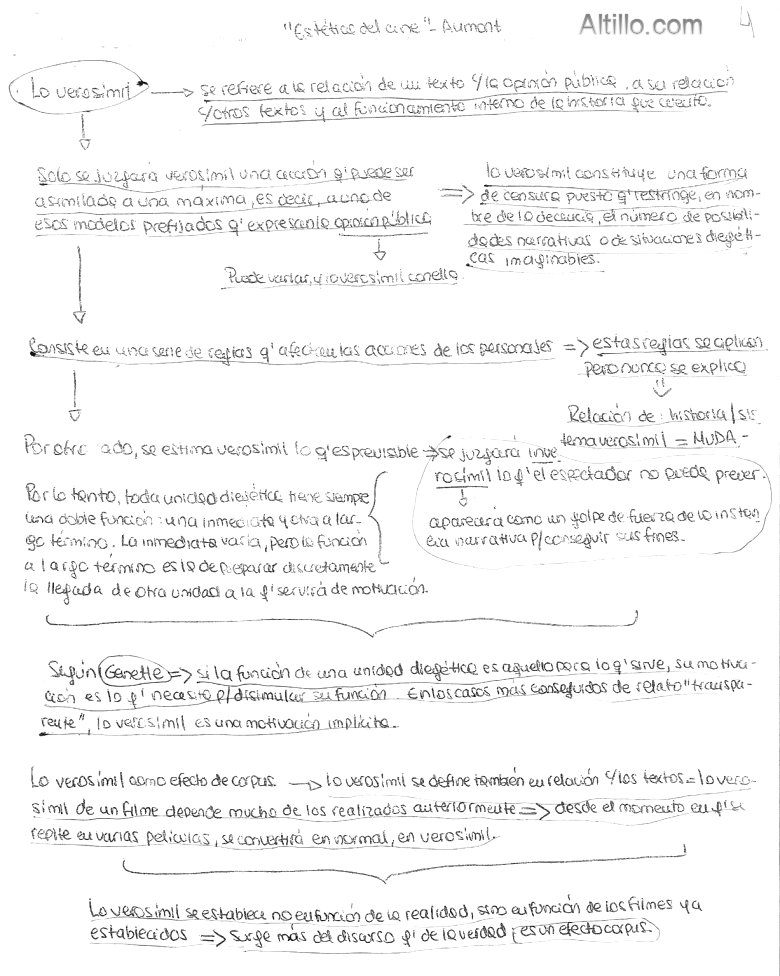 "Estética del cine" - Aumont
Altillo.com
4
Lo verosimil → se refiere a la relación de un texto c/la opinión pública, a su relación
c/otros textos y al funcionamiento interno de la historia que cuenta.
Solo se juzgará verosimil una acción q' puede ser
asimilada a una máxima, es decir, a uno de
esos modelos prefijados q' expresan la opinión pública
Puede variar, y lo verosimil con ella.
⇒ lo verosimil constituye una forma
de censura puesto q' restringe, en nom-
bre de la decencia, el número de posibili-
dades narrativas o de situaciones diegéti-
cas imaginables.
Consiste en una serie de reglas q' afectan las acciones de los personajes ⇒ estas reglas se aplican
pero nunca se explica
Relación de: historia/sis
tema verosimil = MUDA.-
Por otro lado, se estima verosimil lo q' es previsible → se juzgará inve
rosimil lo q' el espectador no puede prever.
aparecerá como un golpe de fuerza de la instan
cia narrativa p/conseguir sus fines.
Por lo tanto, toda unidad diegética tiene siempre
una doble función: una inmediata y otra a lar-
go término. La inmediata varia, pero la función
a largo término es la de preparar discretamente
la llegada de otra unidad a la q' servirá de motivación.
Según Genette ⇒ si la función de una unidad diegética es aquello para lo q' sirve, su motiva-
ción es lo q' necesita p/disimular su función. En los casos más conseguidos de relato "transpa-
rente", lo verosimil es una motivación implícita.
Lo verosimil como efecto de corpus. → lo verosimil se define también en relación c/los textos = lo vero-
simil de un filme depende mucho de los realizados anteriormente ⇒ desde el momento en q' se
repite en varias peliculas, se convertirá en normal, en verosimil.
Lo verosimil se establece no en función de la realidad, sino en función de los filmes ya
establecidos ⇒ surge más del discurso q' de la verdad: es un efecto corpus.